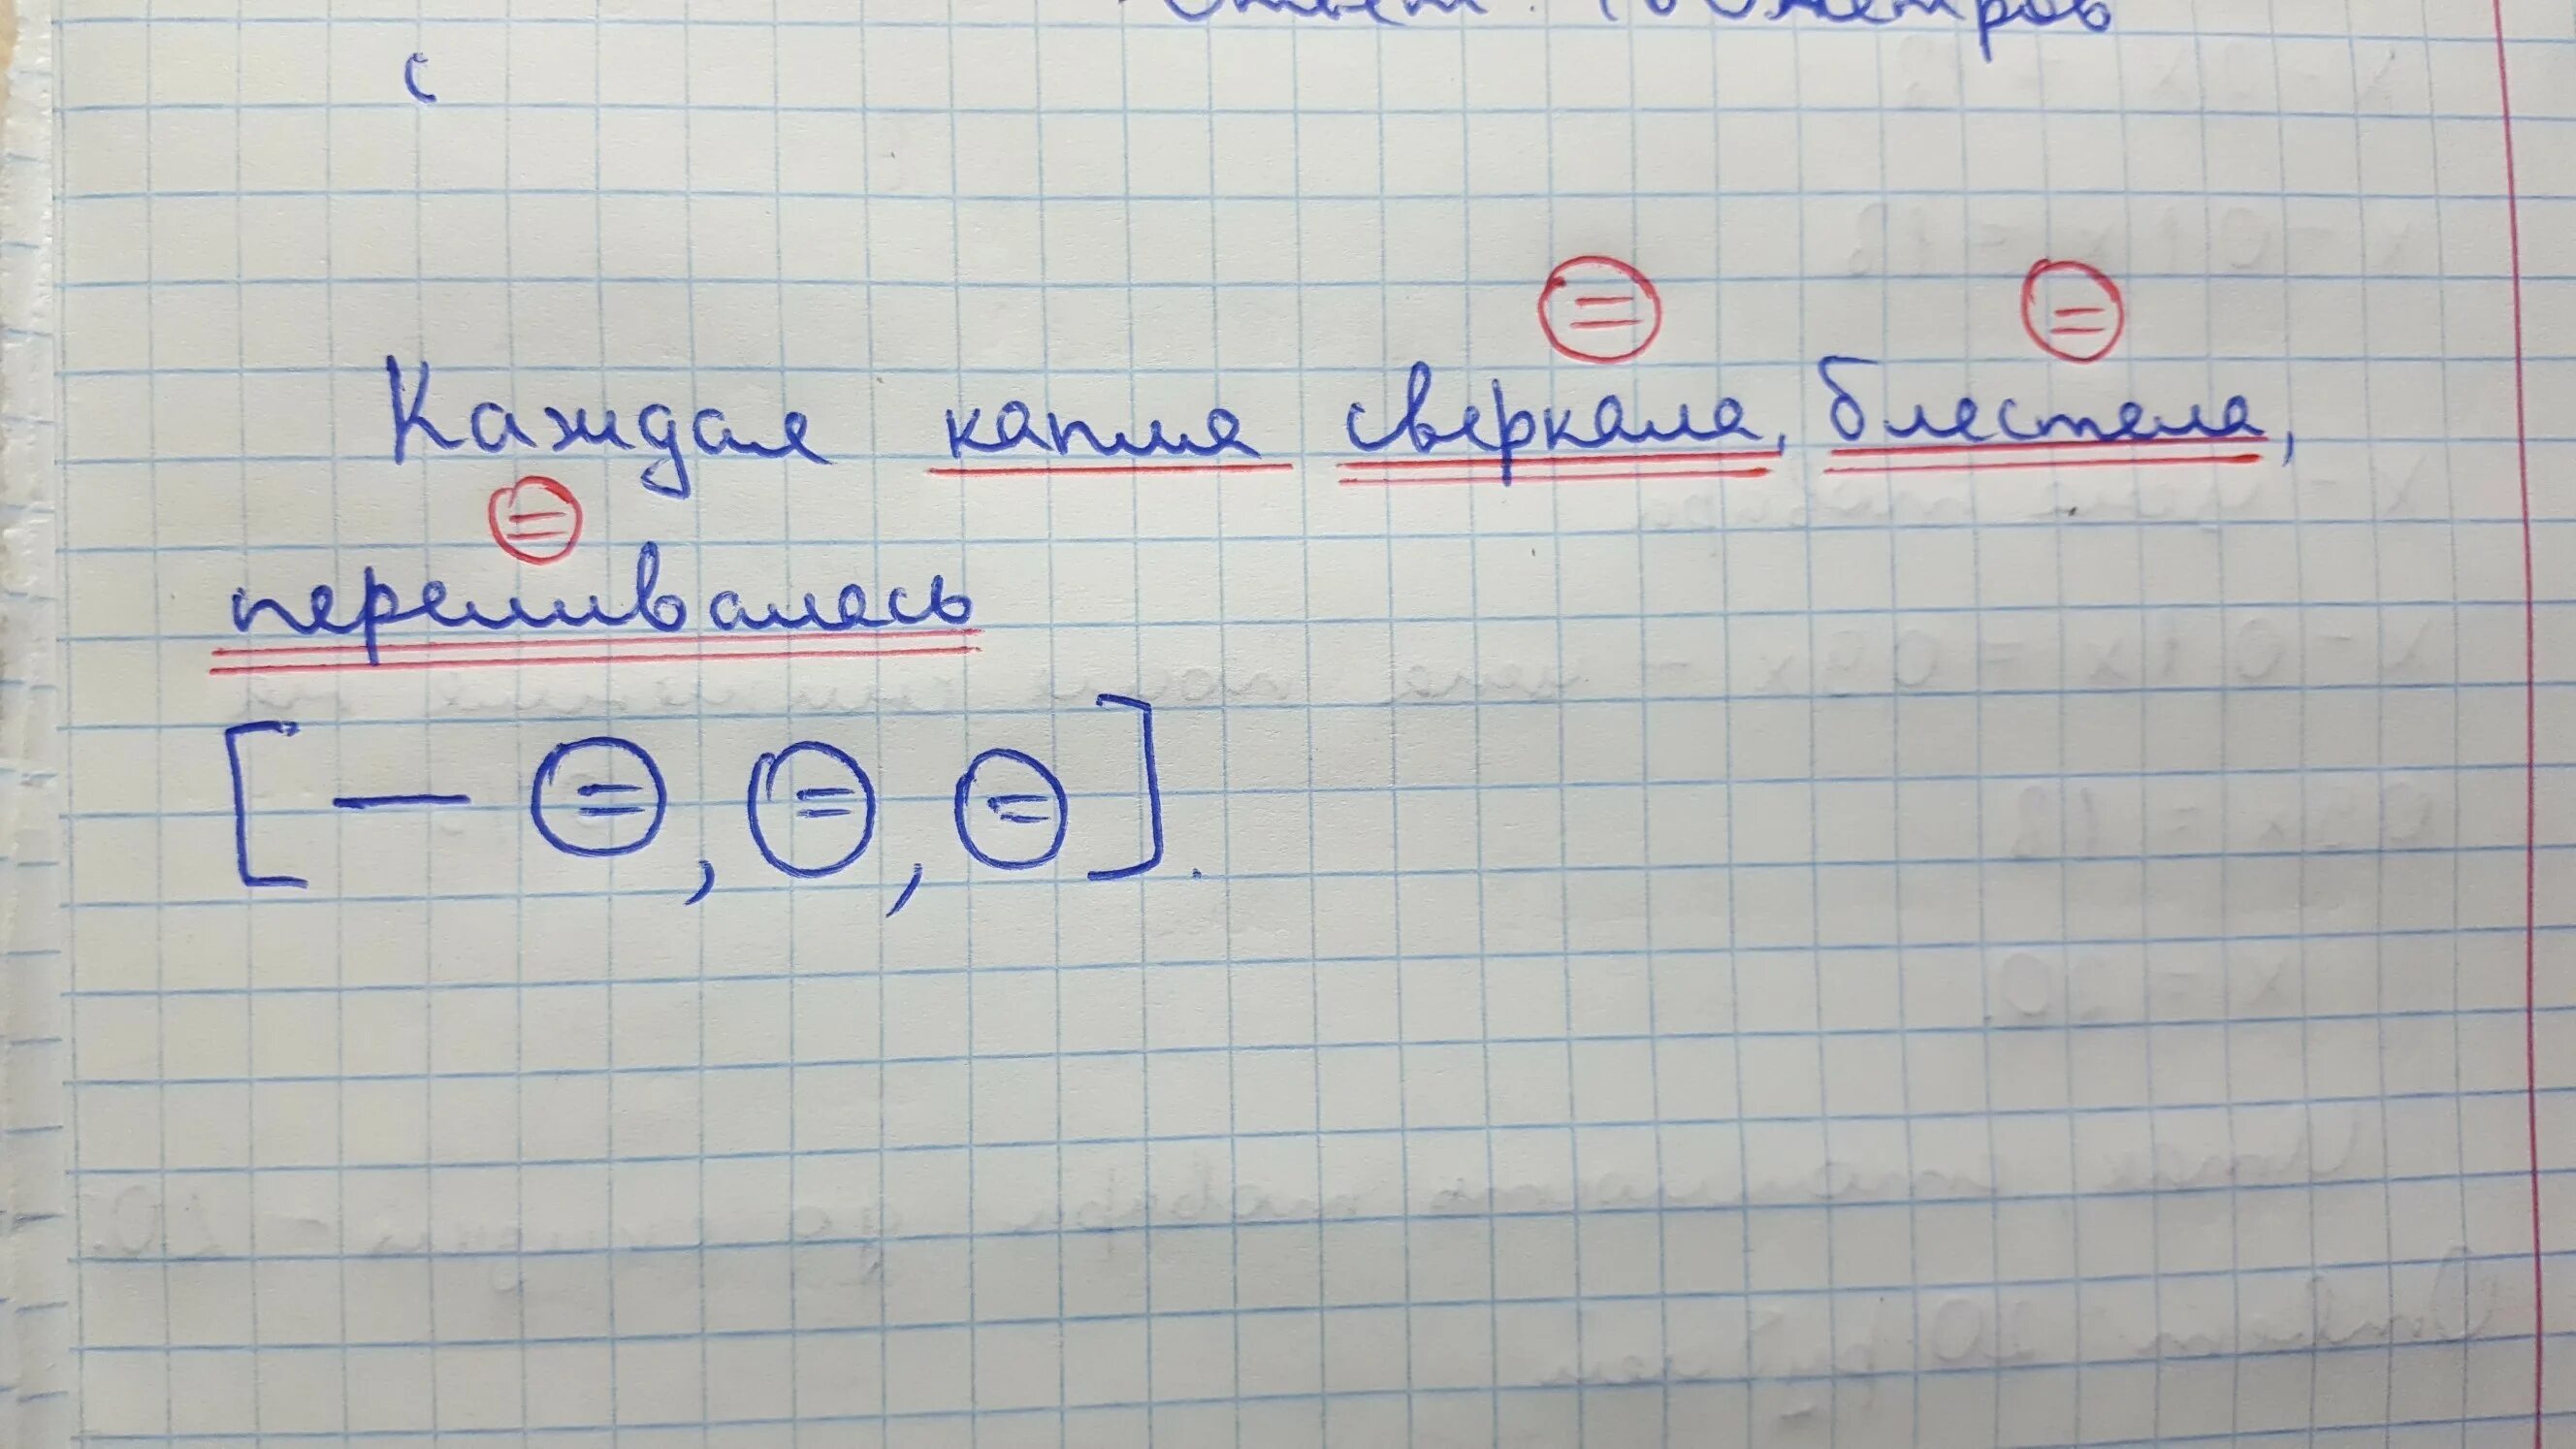 метров
Каждая капля сверкала, блестела,
переливалась
[— =, =, =].